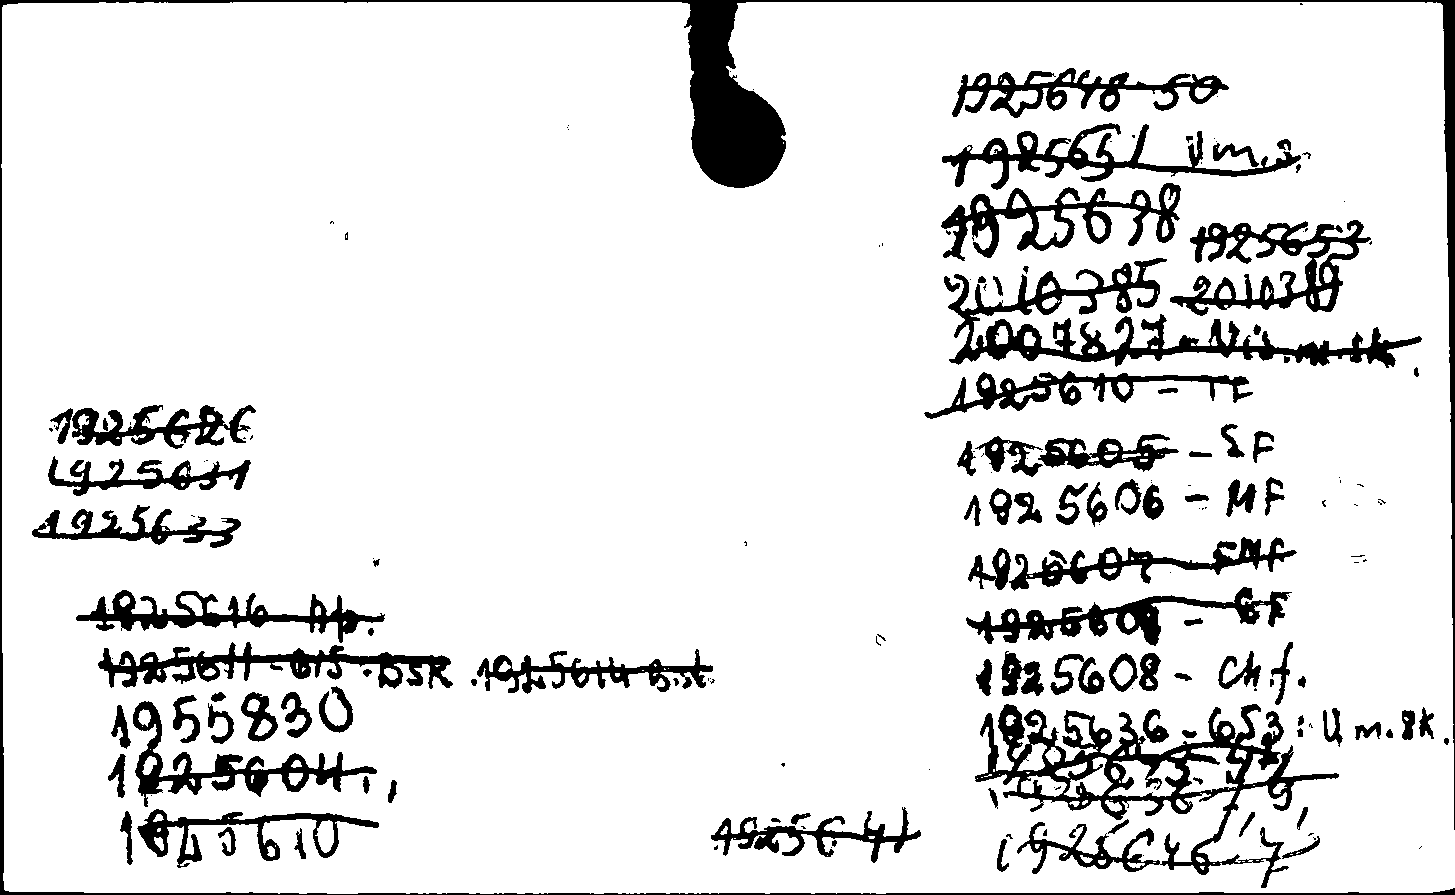 1925648-50
1925651 Um.s.
1925638
1925653
2010385 2010389
2007827 - Vis.m.sk.
1925610 - TF
1925605 - SF
1925606 - MF
1925607 - FMF
1925609 - GF
1925608 - Ch.f.
1925636-653: Um.sk.
1925646/7
1925626
1925631
1925633
1925616 Ap.
1925611-615. DSK. 1925614
1955830
1925604.,
1925610
1925641